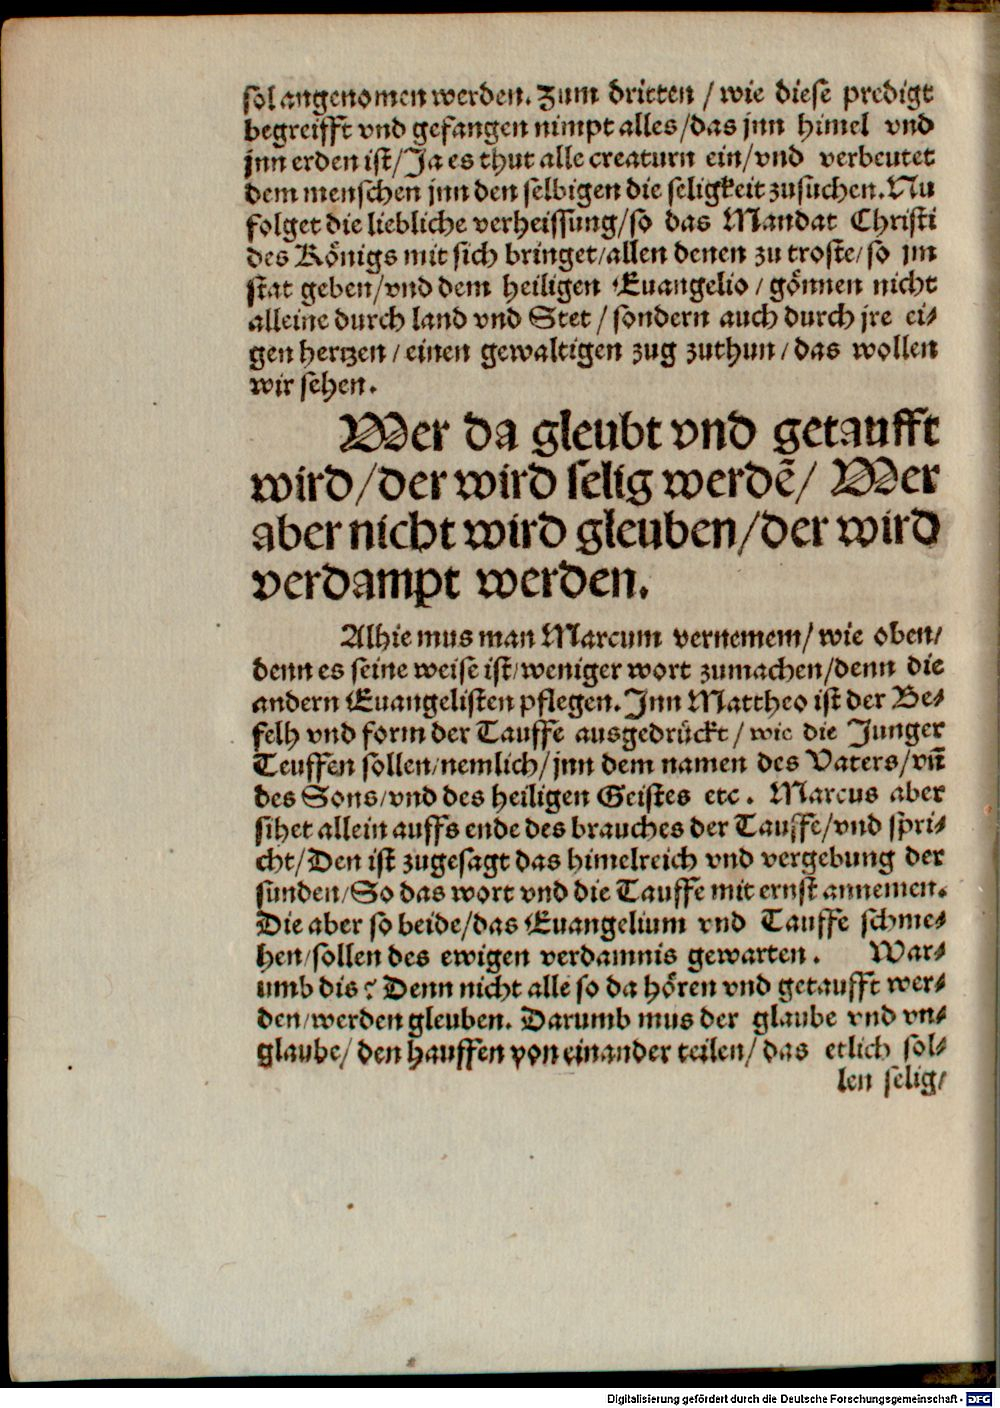 sol angenomen werden. Zum dritten / wie diese predigt
begreifft vnd gefangen nimpt alles/das jnn himel vnd
jnn erden ist/Ja es thut alle creaturn ein/vnd verbeutet
dem menschen jnn den selbigen die seligkeit zusuchen. Nu
folget die liebliche verheissung/so das Mandat Christi
des Königs mit sich bringet/allen denen zu troste/so jm
stat geben/vnd dem heiligen Euangelio / gönnen nicht
alleine durch land vnd Stet / sondern auch durch jre ei-
gen hertzen / einen gewaltigen zug zuthun / das wollen
wir sehen.
Wer da gleubt vnd getaufft
wird/der wird selig werdē/ Wer
aber nicht wird gleuben/der wird
verdampt werden.
Alhie mus man Marcum vernemem/ wie oben/
denn es seine weise ist/weniger wort zumachen/denn die
andern Euangelisten pflegen. Jnn Mattheo ist der Be-
felh vnd form der Tauffe ausgedrückt / wie die Junger
Teuffen sollen/nemlich/jnn dem namen des Vaters/vñ
des Sons/vnd des heiligen Geistes etc. Marcus aber
sihet allein auffs ende des brauches der Tauffe/vnd spri-
cht/Den ist zugesagt das himelreich vnd vergebung der
sunden/So das wort vnd die Tauffe mit ernst annemen.
Die aber so beide/das Euangelium vnd Tauffe schme-
hen/sollen des ewigen verdamnis gewarten. War-
umb dis? Denn nicht alle so da hören vnd getaufft wer-
den/werden gleuben. Darumb mus der glaube vnd vn-
glaube/ den hauffen von einander teilen/ das etlich sol-
len selig/
Digitalisierung gefördert durch die Deutsche Forschungsgemeinschaft - DFG